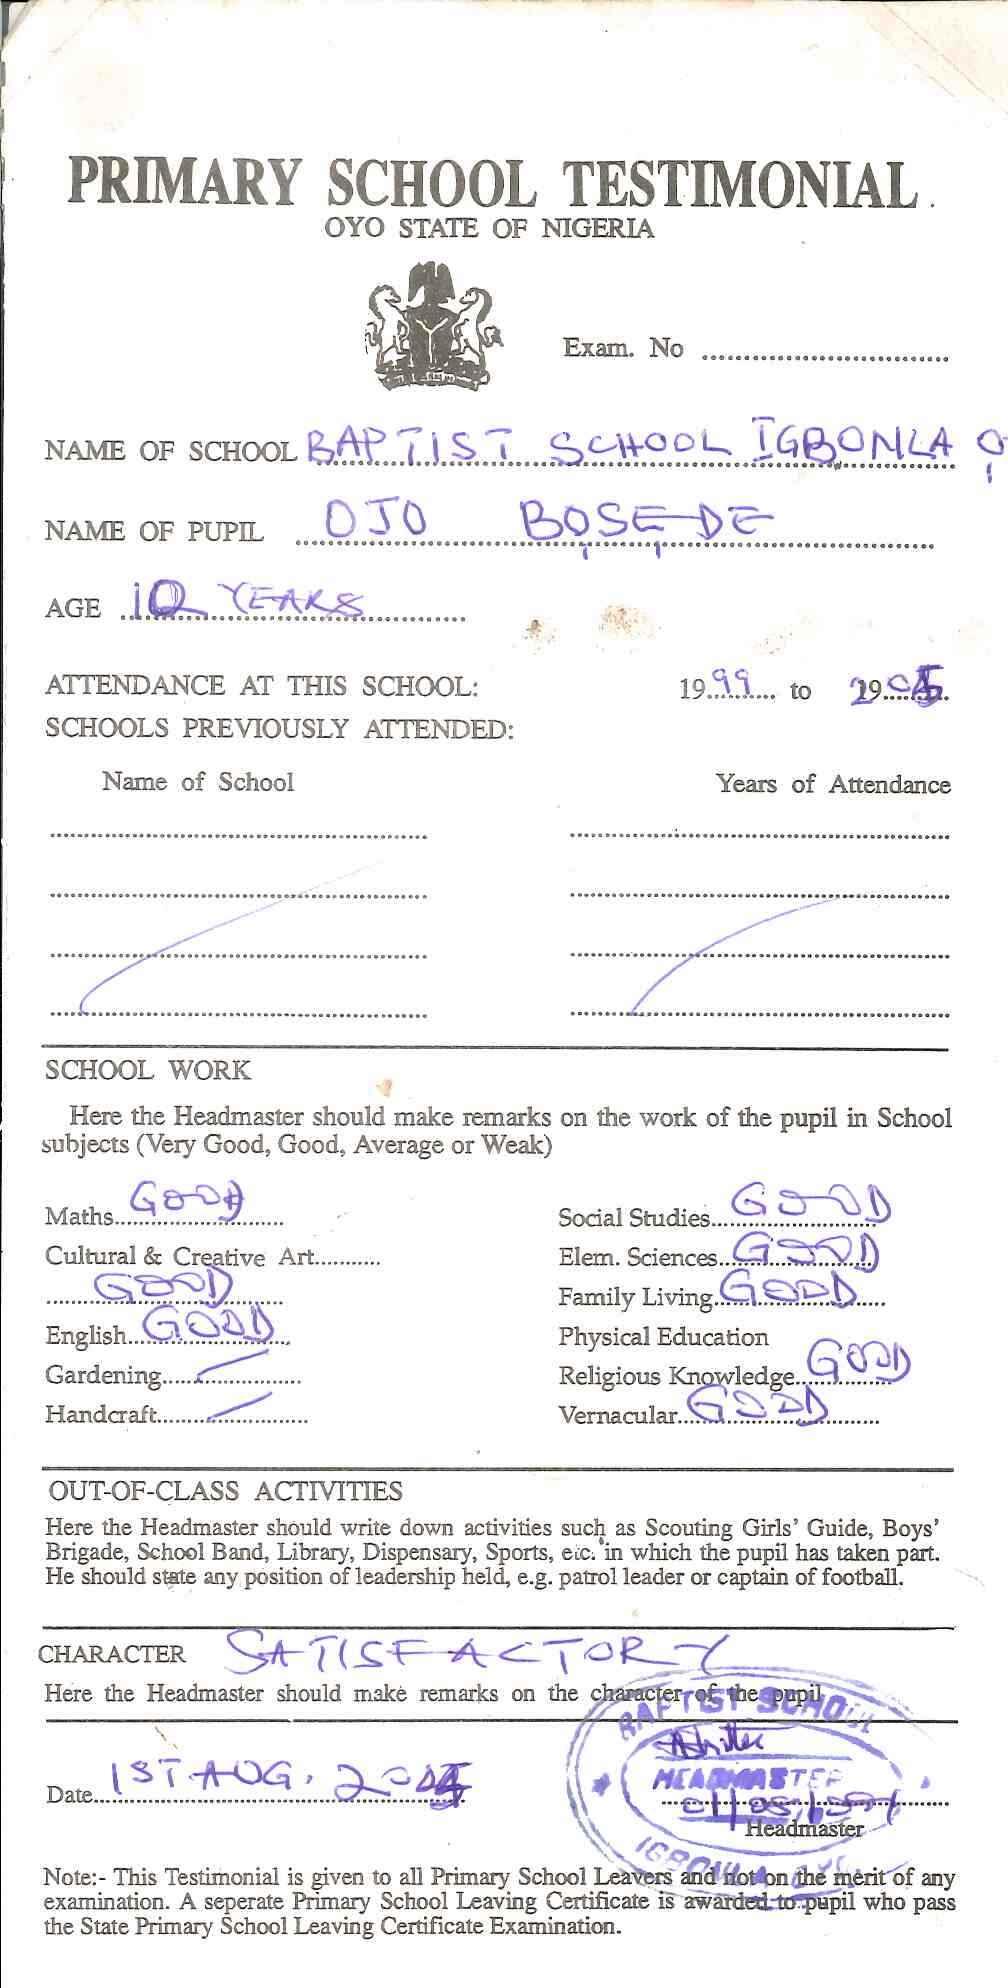 PRIMARY SCHOOL TESTIMONIAL.
OYO STATE OF NIGERIA
Exam. No ..............................
NAME OF SCHOOL BAPTIST SCHOOL IGBONLA
NAME OF PUPIL OJO BỌSẸDE
AGE 10 YEARS
ATTENDANCE AT THIS SCHOOL: 1999 to
SCHOOLS PREVIOUSLY ATTENDED:
Name of School Years of Attendance
SCHOOL WORK
Here the Headmaster should make remarks on the work of the pupil in School
subjects (Very Good, Good, Average or Weak)
Maths GOOD Social Studies GOOD
Cultural & Creative Art........... Elem. Sciences GOOD
GOOD Family Living GOOD
English GOOD Physical Education
Gardening Religious Knowledge GOOD
Handcraft Vernacular GOOD
OUT-OF-CLASS ACTIVITIES
Here the Headmaster should write down activities such as Scouting Girls' Guide, Boys'
Brigade, School Band, Library, Dispensary, Sports, etc. in which the pupil has taken part.
He should state any position of leadership held, e.g. patrol leader or captain of football.
CHARACTER SATISFACTORY
Here the Headmaster should make remarks on the character of the pupil
BAPTIST SCHOOL
HEADMASTER
Date 1ST AUG.
Headmaster
IGBONLA
Note:- This Testimonial is given to all Primary School Leavers and not on the merit of any
examination. A seperate Primary School Leaving Certificate is awarded to pupil who pass
the State Primary School Leaving Certificate Examination.